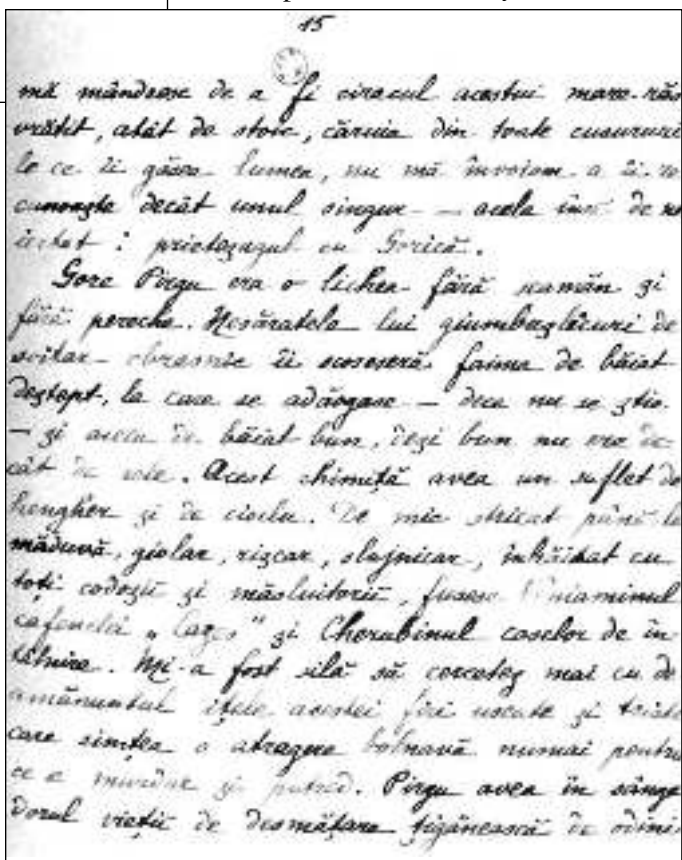 15
mă mândream de a fi ciracul acestui mare răs
vrătit, atât de stoic, căruia din toate cusururi
le ce îi găsea lumea, nu mă învoiam a îi re
cunoaște decât unul singur — acela însă de ne
iertat : prieteșugul cu Gorică.
Gore Pirgu era o lichea fără seamăn și
fără pereche. Nesăratele lui giumbușlucuri de
soitar obraznic îi scoseseră faima de băiat
deștept, la care se adăogase — dece nu se știe
— și aceea de băiat bun, deși bun nu era de
cât de rele. Acest chimiță avea un suflet de
hengher și de cioclu. De mic stricat până la
măduvă, giolar, rișcar, slujnicar, înhăitat cu
toți codoșii și măsluitorii, fusese Veniaminul
cafenelei „Cazes" și Cherubinul caselor de în
tâlnire. Mi-a fost silă să cercetez mai cu de
amănuntul ițele acestei firi uscate și triste
care simțea o atragere bolnavă numai pentru
ce e murdar și putred. Pirgu avea în sânge
dorul vieții de desmățare țigănească de odini